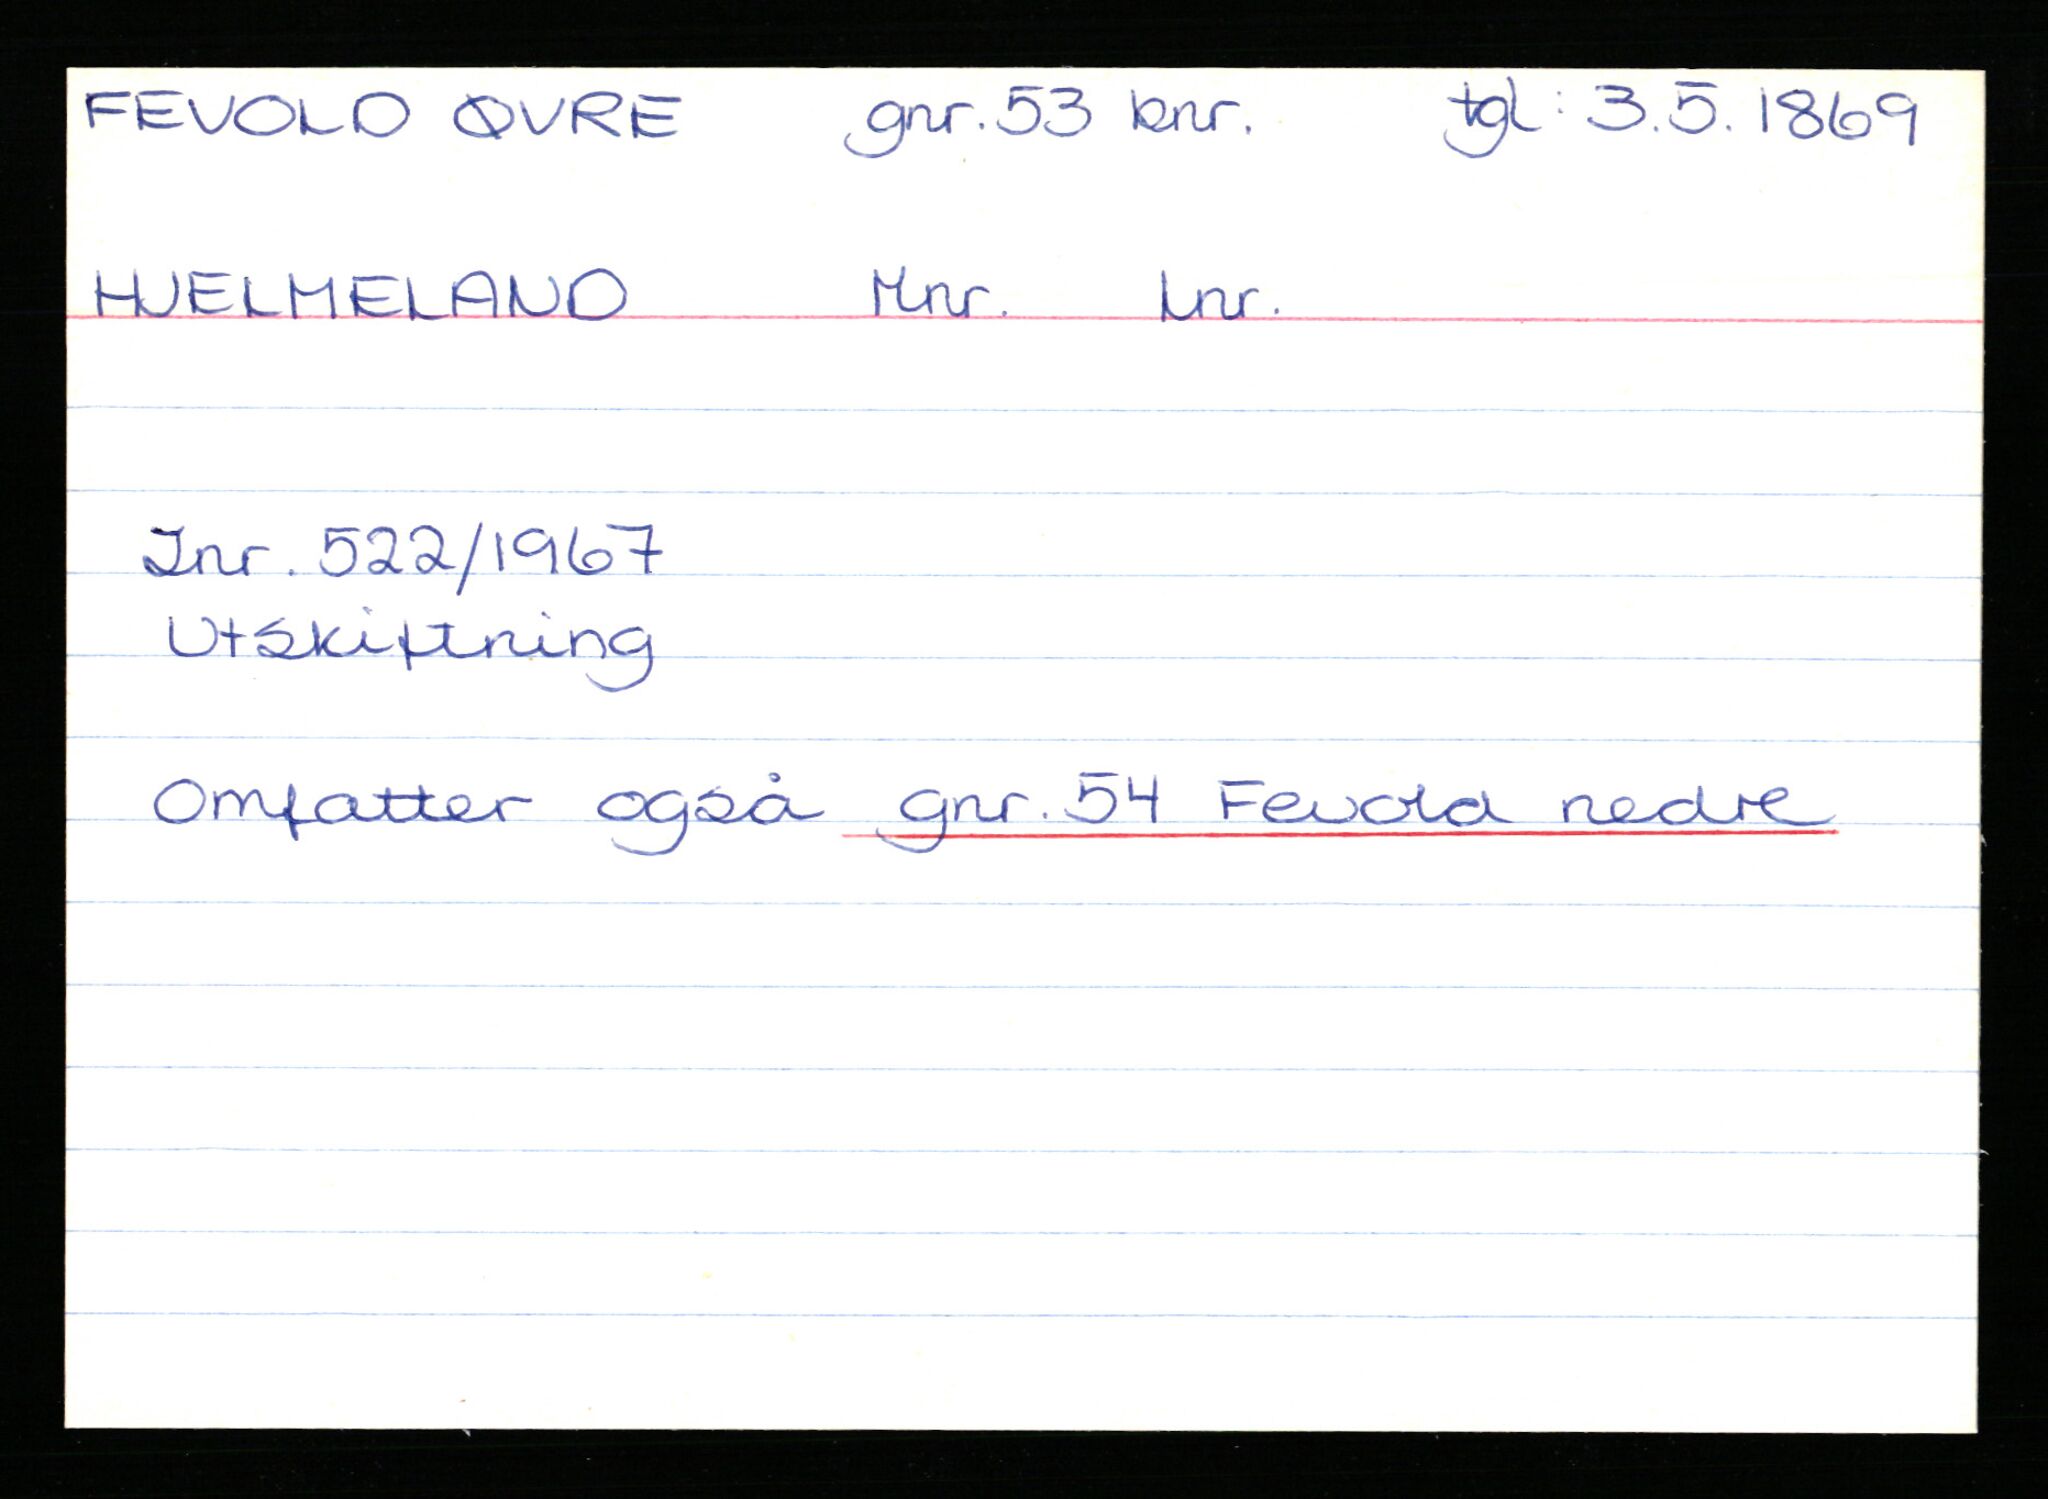 FEVOLD ØVRE gnr. 53 bnr. tgl: 3.5.1869
HJELMELAND Mnr. Lnr.
Jnr. 522/1967
Utskiftning
Omfatter også gnr. 54 Fevold nedre